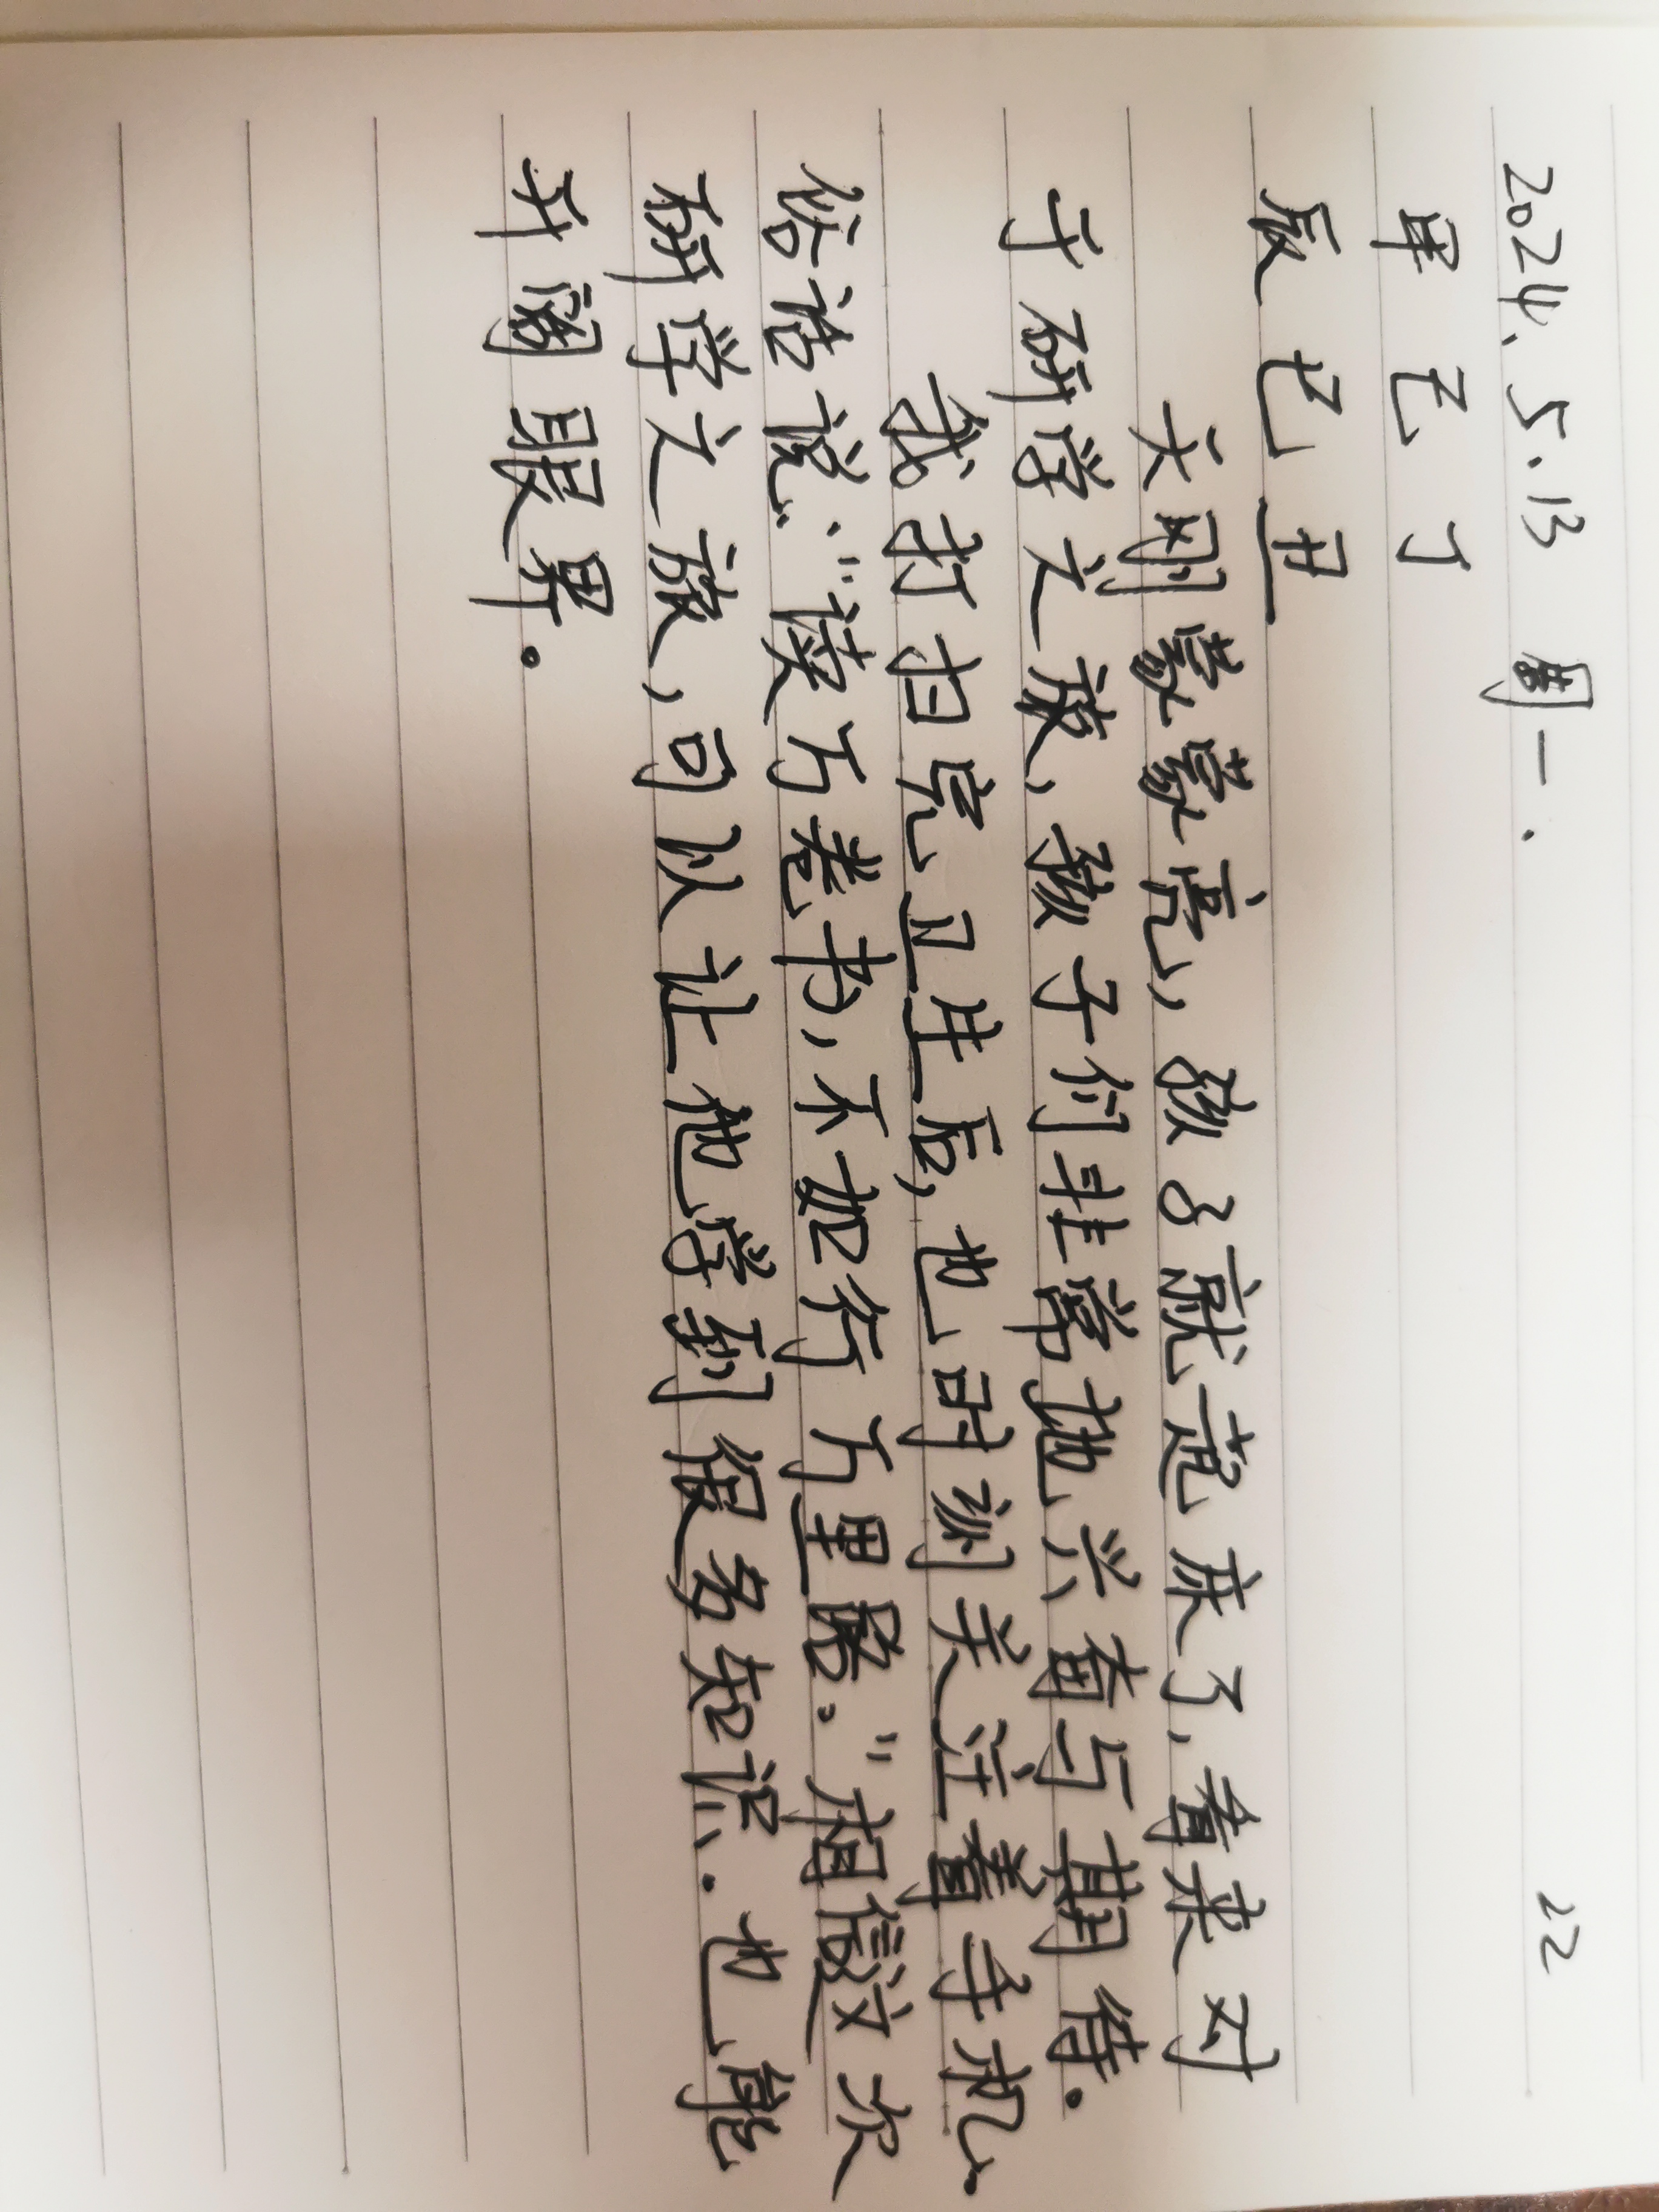 2024.5.13 周一. 22
早 己 丁
辰 巳 丑
天刚蒙蒙亮,孩子就起床了,看来对
于研学之旅,孩子们非常抱兴奋与期待.
我打扫完卫生后,也时测关注着手机.
俗话说:"读万卷书,不如行万里路."相信这次
研学之旅,可以让他学到很多知识.也能
开阔眼界。